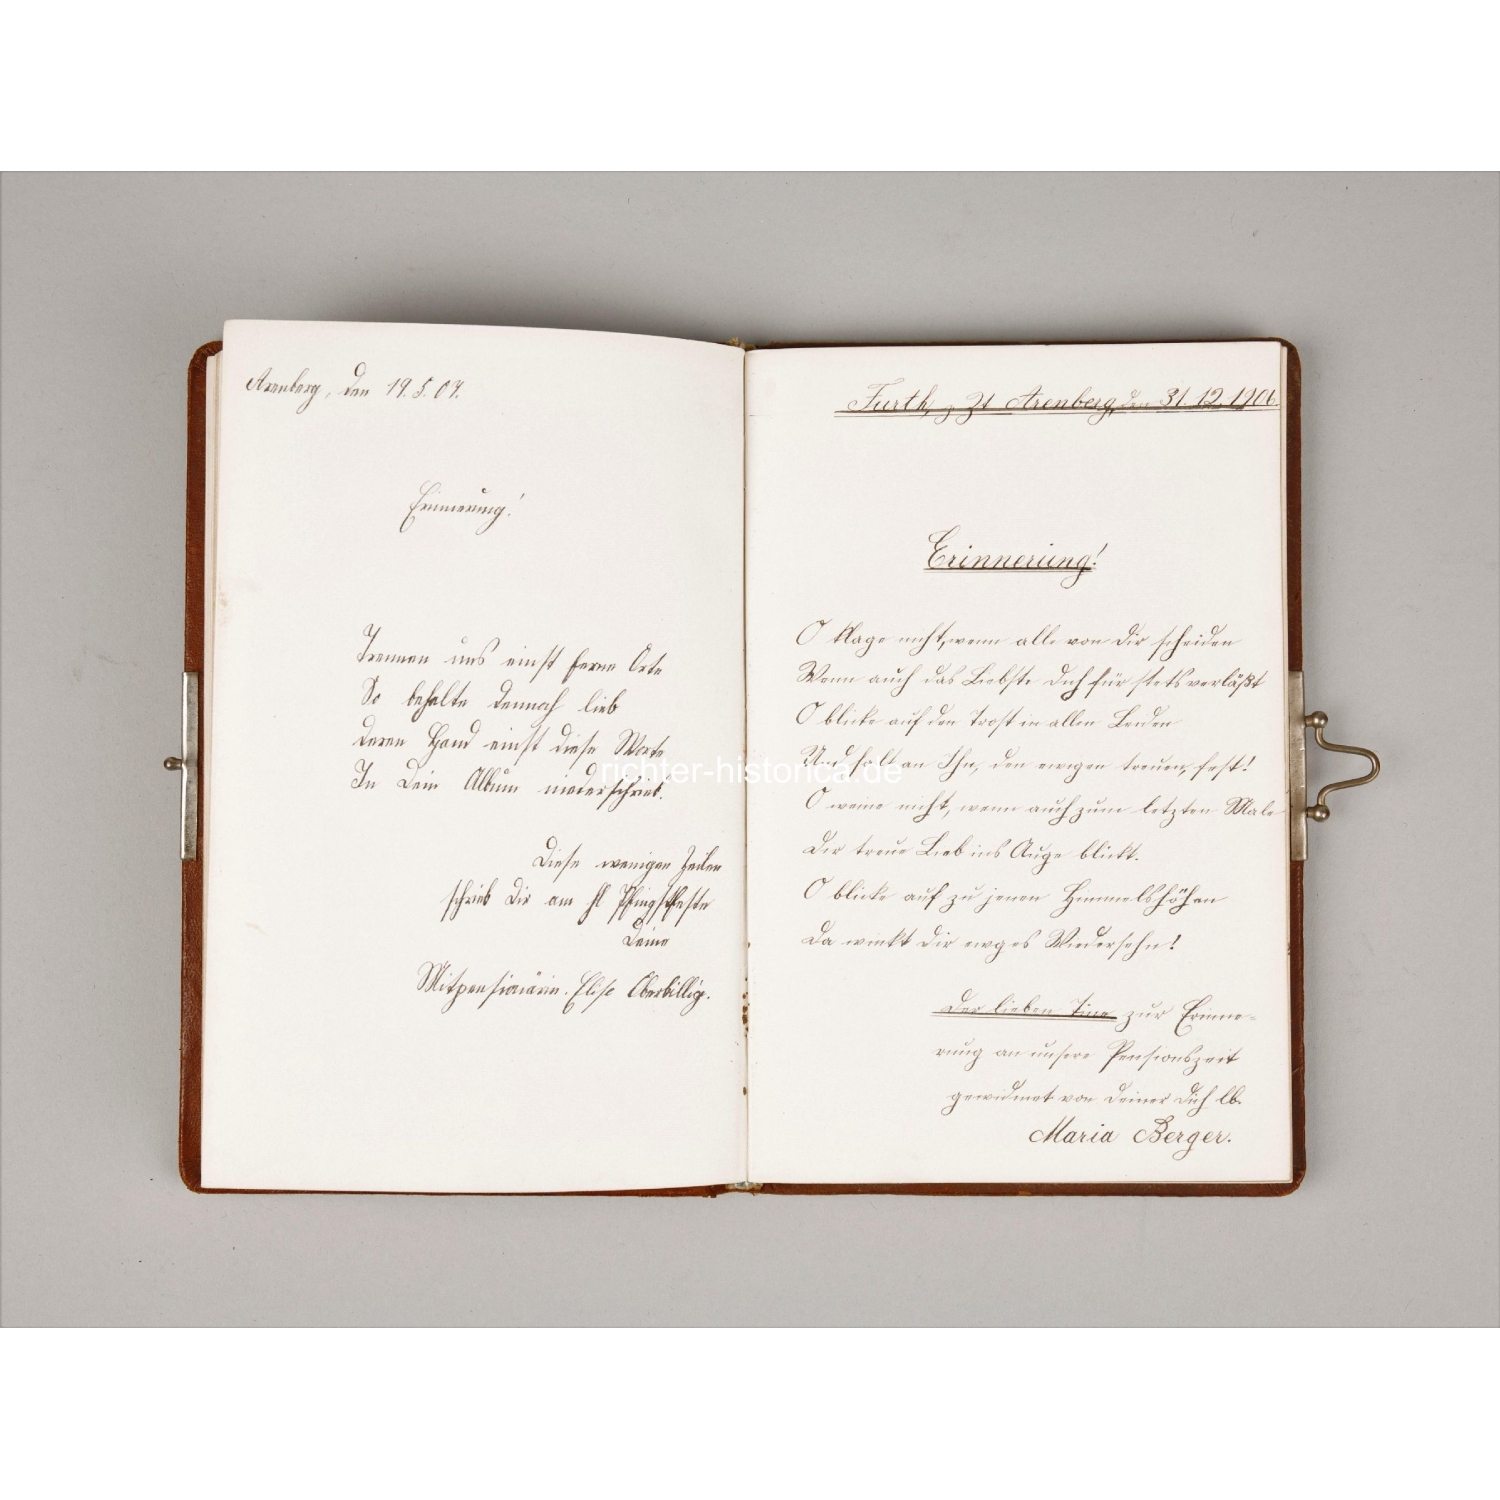 Arenberg, den 19.5.07.
Erinnerung!
Trennen uns einst ferne Orte
So behalte dennoch lieb
Deren Hand einst diese Worte
In Dein Album niederschrieb.
Diese wenigen Zeilen
schrieb Dir am hl Pfingstfeste
Deine
Mitpensionärin. Elise Oberbillig.
Furth, z Zt Arenberg, den 31.12.1906.
Erinnerung!
O klage nicht, wenn alle von Dir scheiden
Wenn auch das Liebste Dich für stets verläßt
O blicke auf den Trost in allen Leiden
Und halt an Ihn, den ewigen treuen, fest!
O weine nicht, wenn auch zum letzten Male
Dir treue Lieb ins Auge blickt.
O blicke auf zu jenen Himmelshöhen
Da winkt Dir ewges Wiedersehn!
Der lieben Tina zur Erinne-
rung an unsere Pensionszeit
gewidmet von Deiner Dich lb.
Maria Berger.
richter-historica.de